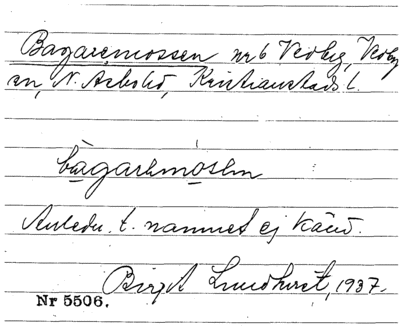 Bagaremossen nr 6 Vedby, Vedby
sn, N. Åsbo hd, Kristianstads l.
bagarəmosən
Anledn. t. namnet ej känd.
Birgit Lundkvist, 1937.
Nr 5506.